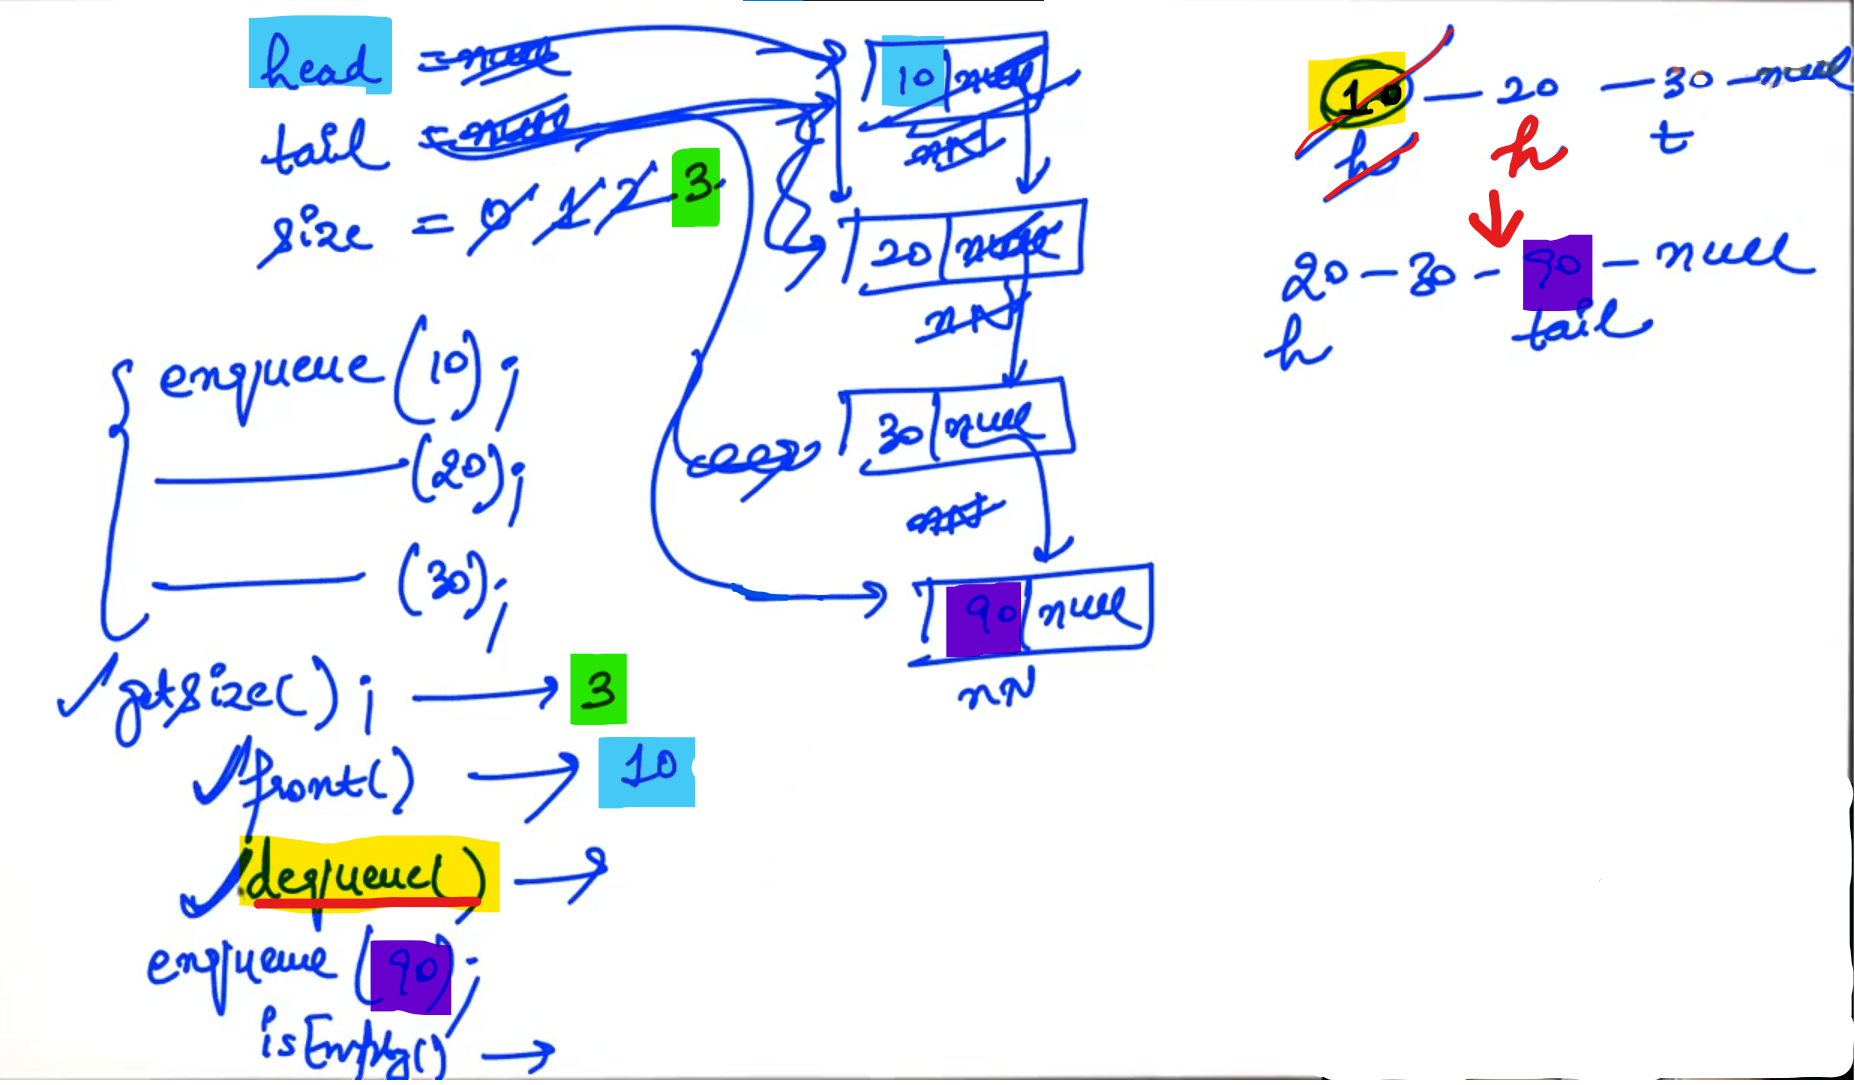 head = null
tail = null
size = 0 1 2 3
enqueue(10);
(20);
(30);
getsize(); → 3
front() → 10
dequeue() →
enqueue(90);
isEmpty() →
10 | null
nN
20 | null
nN
30 | null
nN
90 | null
nN
10 — 20 — 30 — null
h h t
20 — 30 — 90 — null
h tail